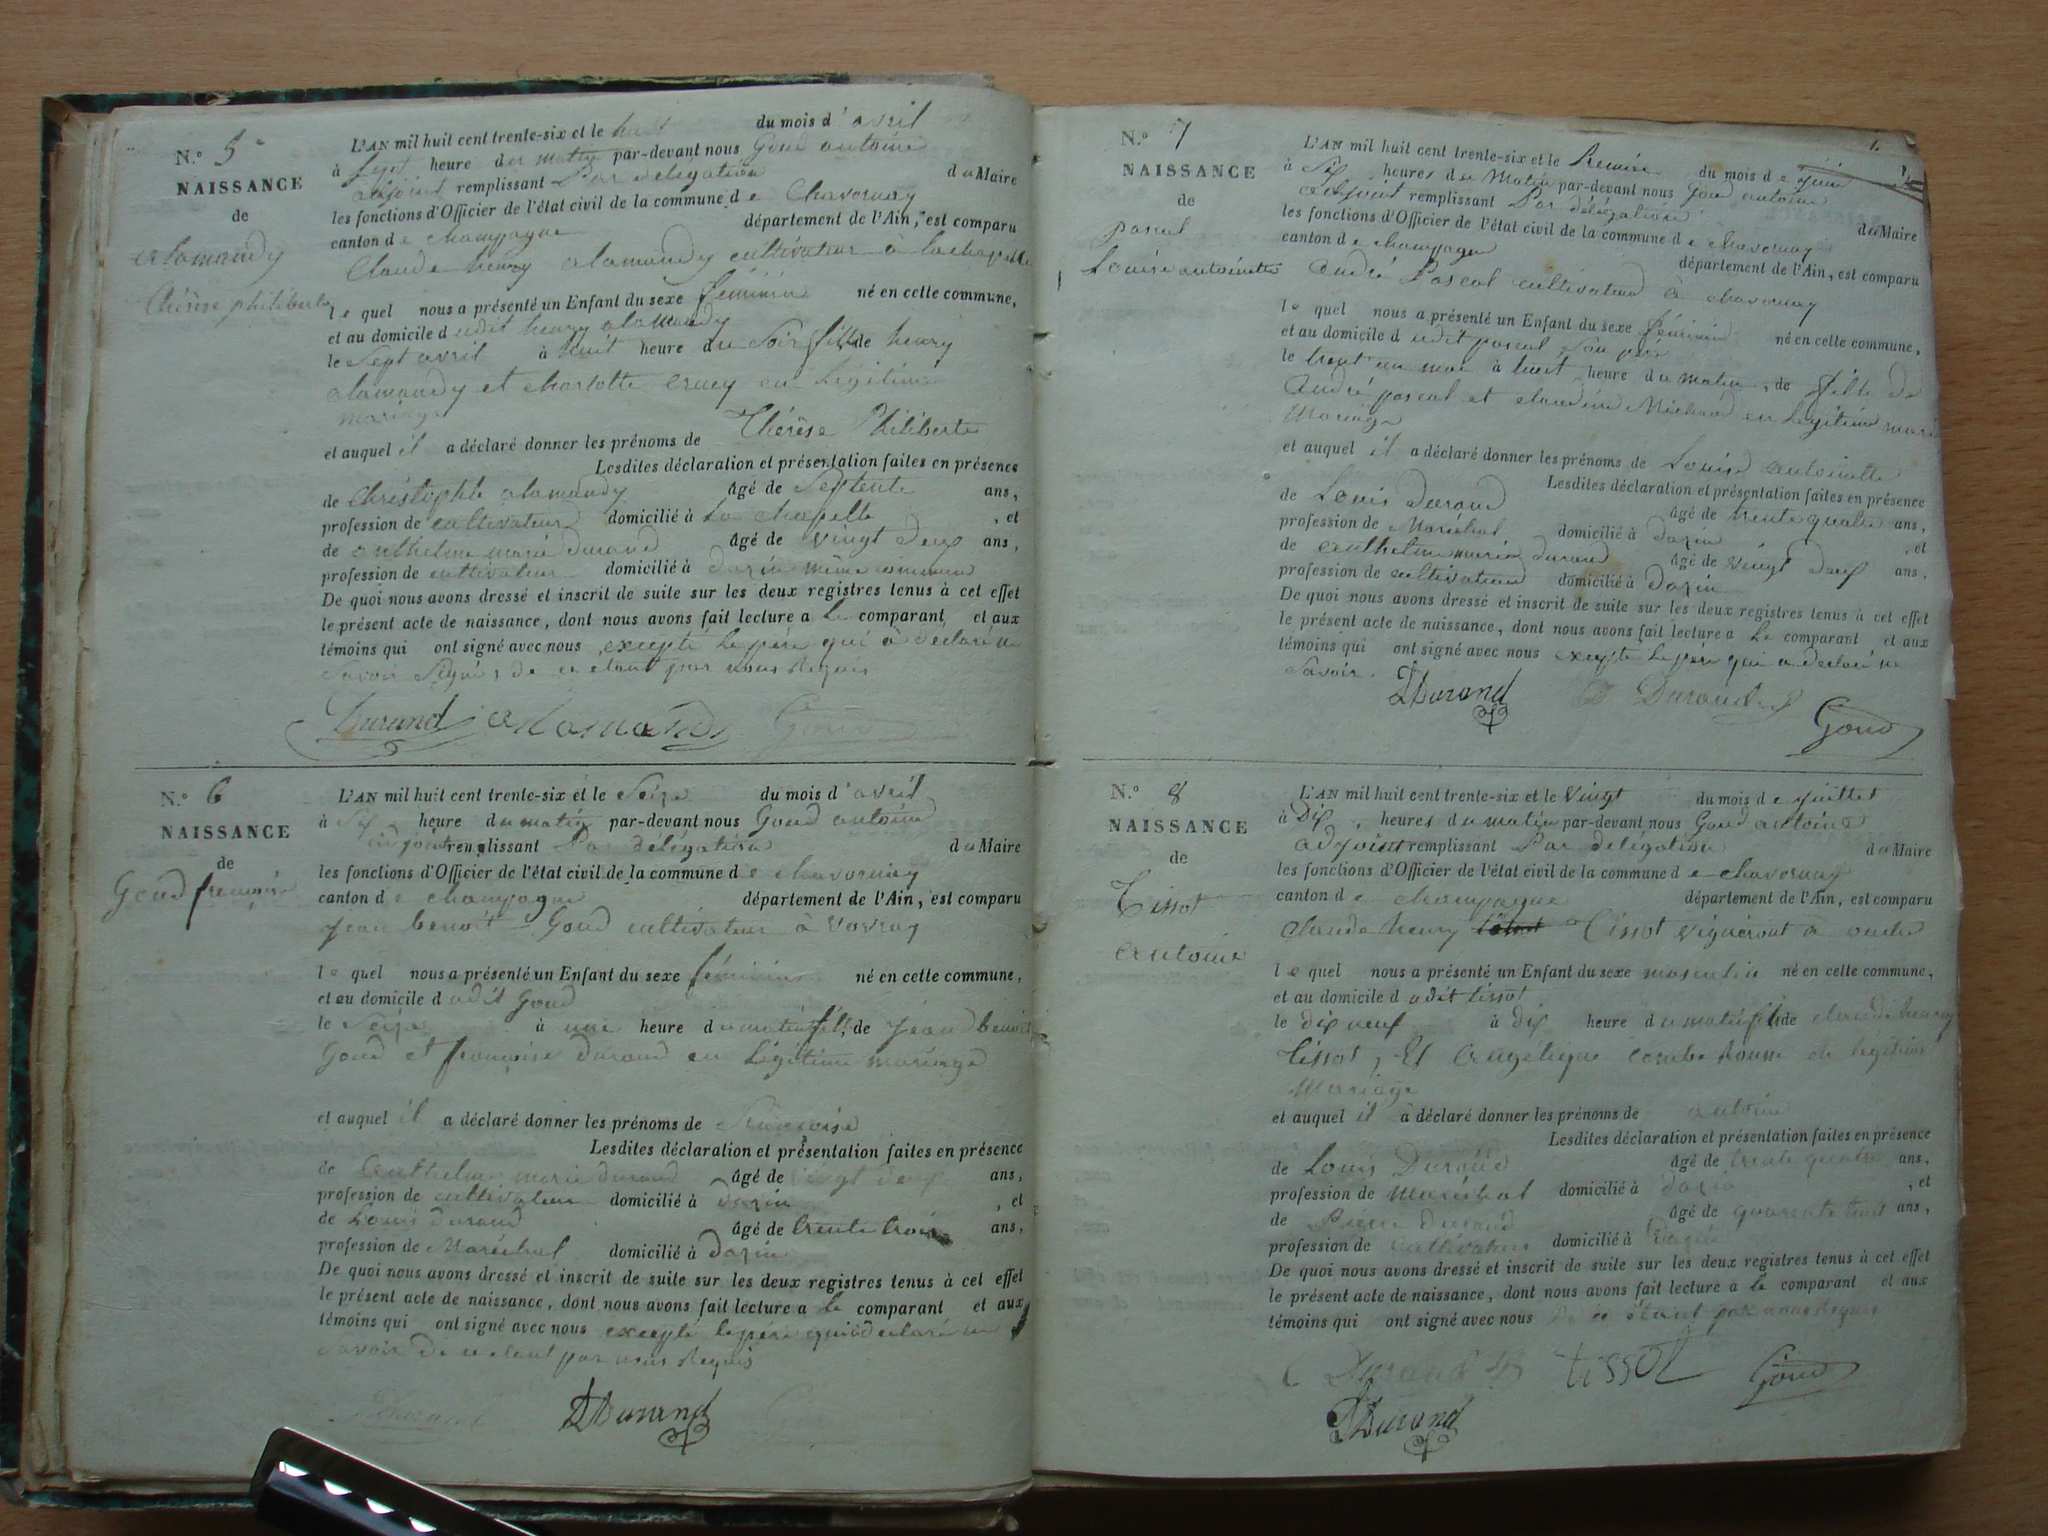 N.° 5
NAISSANCE
de
alamandy
Thérèse philiberte
L'AN mil huit cent trente-six et le huit du mois d'avril
à sept heure du matin par-devant nous Goud antoine
adjoint remplissant Par délégation du Maire
les fonctions d'Officier de l'état civil de la commune de Chavornay
canton de champagne département de l'Ain, est comparu
Claude henry alamandy cultivateur à lachapelle
lequel nous a présenté un Enfant du sexe féminin né en cette commune,
et au domicile dudit henry alamandy
le Sept avril à huit heure du Soir fille de henry
alamandy et charlotte en Légitime
mariage
et auquel il a déclaré donner les prénoms de Thérèse Philiberte
Lesdites déclaration et présentation faites en présence
de Christophe alamandy âgé de Septente ans,
profession de cultivateur domicilié à La chapelle , et
de anthelme marie durand âgé de vingt deux ans,
profession de cultivateur domicilié à dazin même commune
De quoi nous avons dressé et inscrit de suite sur les deux registres tenus à cet effet
le présent acte de naissance, dont nous avons fait lecture a Le comparant et aux
témoins qui ont signé avec nous excepté Le père qui à déclaré ne
savoir Signer de ce étant par nous Requis
Durand alamandy Goud
N.° 6
NAISSANCE
de
Goud françoise
L'AN mil huit cent trente-six et le Seize du mois d'avril
à Six heure du matin par-devant nous Goud antoine
adjoint remplissant Par délégation du Maire
les fonctions d'Officier de l'état civil de la commune de chavornay
canton de champagne département de l'Ain, est comparu
jean benoit Goud cultivateur à vovray
lequel nous a présenté un Enfant du sexe féminin né en cette commune,
et au domicile dudit Goud
le Seize à une heure du matin fille de jean benoit
Goud et françoise durand en Légitime mariage
et auquel il a déclaré donner les prénoms de françoise
Lesdites déclaration et présentation faites en présence
de anthelme marie durand âgé de vingt deux ans,
profession de cultivateur domicilié à dazin , et
de Louis durand âgé de trente trois ans,
profession de Maréchal domicilié à dazin
De quoi nous avons dressé et inscrit de suite sur les deux registres tenus à cet effet
le présent acte de naissance, dont nous avons fait lecture a Le comparant et aux
témoins qui ont signé avec nous excepté le père qui à déclaré ne
savoir de ce étant par nous Requis
Durand LDurand
N.° 7
NAISSANCE
de
pascal
Louise antoinette
L'AN mil huit cent trente-six et le Premier du mois de juin
à Six heures du Matin par-devant nous Goud antoine
adjoint remplissant Par délégation du Maire
les fonctions d'Officier de l'état civil de la commune de chavornay
canton de champagne département de l'Ain, est comparu
andré Pascal cultivateur à chavornay
lequel nous a présenté un Enfant du sexe féminin né en cette commune,
et au domicile dudit pascal son père
le trent'un mai à huit heure du matin, de fille de
André pascal et claudine Michaud en Légitime mari
Mariage
et auquel il a déclaré donner les prénoms de Louise antoinette
Lesdites déclaration et présentation faites en présence
de Louis Durand âgé de trente quatre ans,
profession de Maréchal domicilié à dazin , et
de anthelme marie durand âgé de vingt deux ans,
profession de cultivateur domicilié à Dazin
De quoi nous avons dressé et inscrit de suite sur les deux registres tenus à cet effet
le présent acte de naissance, dont nous avons fait lecture a Le comparant et aux
témoins qui ont signé avec nous excepté Le père qui a déclaré ne
Savoir.
LDurand Durand Goud
N.° 8
NAISSANCE
de
Tissot
antoine
L'AN mil huit cent trente-six et le Vingt du mois de juillet
à Dix heures du matin par-devant nous Goud antoine
adjoint remplissant Par délégation du Maire
les fonctions d'Officier de l'état civil de la commune de chavornay
canton de champagne département de l'Ain, est comparu
claude henry Tissot vigneront à
lequel nous a présenté un Enfant du sexe masculin né en cette commune,
et au domicile dudit tissot
le dix neuf à dix heure du matin fils de claude henry
tissot, Et Angelique en legitime
Mariage
et auquel il a déclaré donner les prénoms de antoine
Lesdites déclaration et présentation faites en présence
de Louis Durand âgé de trente quatre ans,
profession de maréchal domicilié à dazin , et
de Pierre Durand âgé de quarente huit ans,
profession de cultivateur domicilié à Dazin
De quoi nous avons dressé et inscrit de suite sur les deux registres tenus à cet effet
le présent acte de naissance, dont nous avons fait lecture a Le comparant et aux
témoins qui ont signé avec nous De ce étant par nous Requis
Durand tissot Goud
LDurand